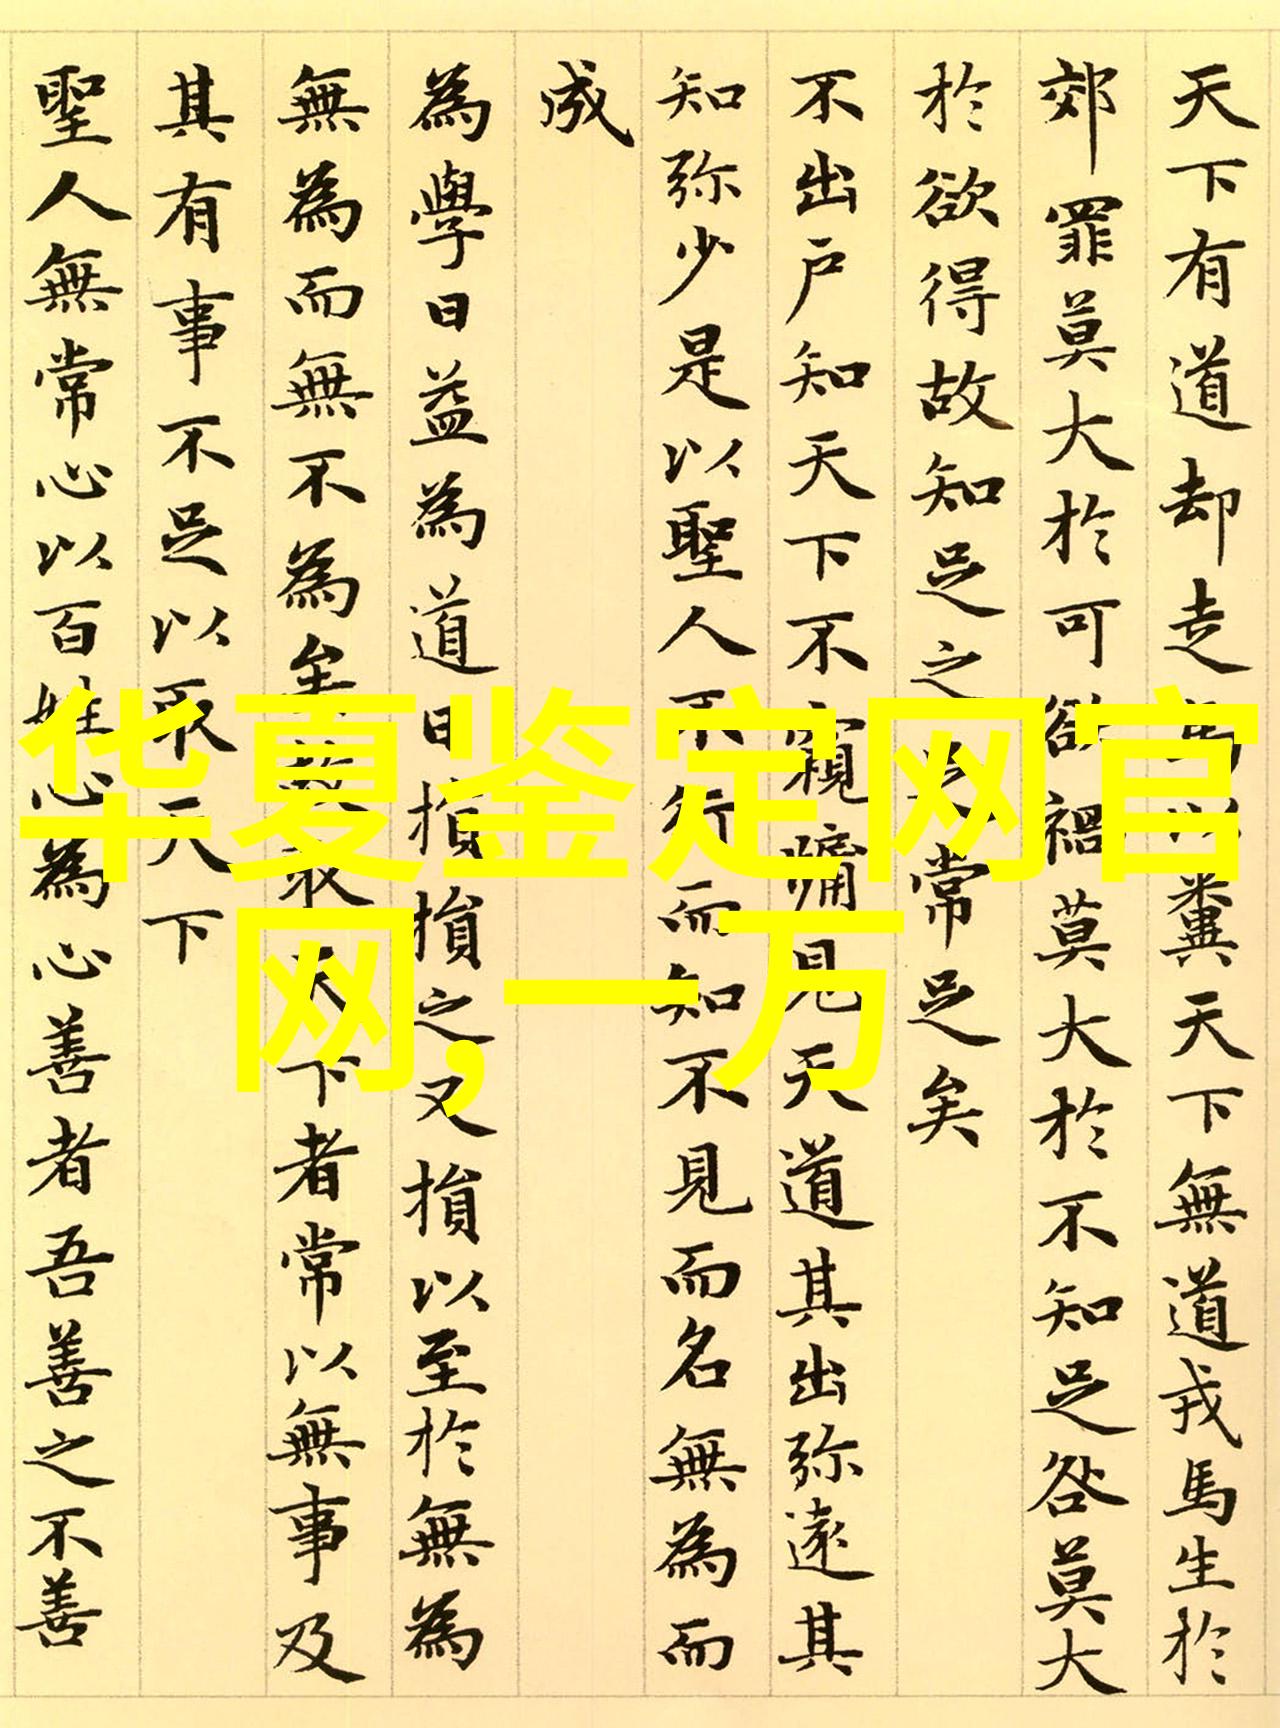 天下有道却走馬以糞天下無道戎馬生於
郊罪莫大於可欲禍莫大於不知足咎莫大
於欲得故知足之足常足矣
不出户知天下不窺牖見天道其出弥遠其
知弥少是以聖人不行而知不見而名無為而
成
為學日益為道日損損之又損以至於無為
無為而無不為矣故取天下者常以無事及
其有事不足以取天下
聖人無常心以百姓心為心善者吾善之不善
华夏鉴定网官
网,一万